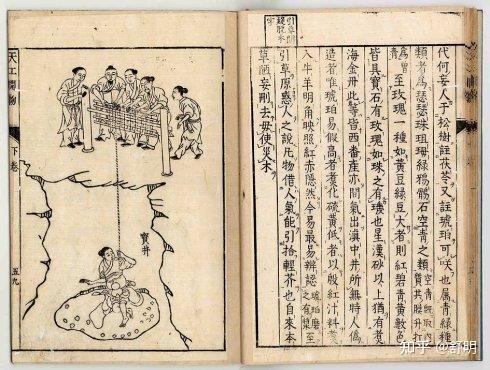 代何妄人于松樹註茯苓又註琥珀可咲也属青綠種
類者為瑟瑟珠珇母綠鴉鶻石空青之類空青既取內質其膜升打
為曾青至玫瑰一種如黄豆綠豆大者則紅碧青黄數色
皆具寶石有玫瑰如珠之有璣也星漢砂以上猶有煮
海金丹此等皆西番産亦間氣出滇中井所無時人偽
造者唯琥珀易假高者煮化硫黄低者以殷紅汁料煮
入牛羊明角映照紅赤隱然今易最辨認琥珀磨至之有漿
引草原惑人之說凡物借人氣能引拾輕芥也自來本
草陋妄刪去毋使災木
寶井
天工開物
下卷
五九
知乎 @舒明